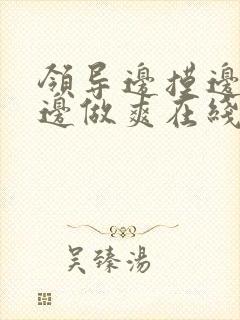 領导邊摸邊
邊做爽在綫
吴臻湯